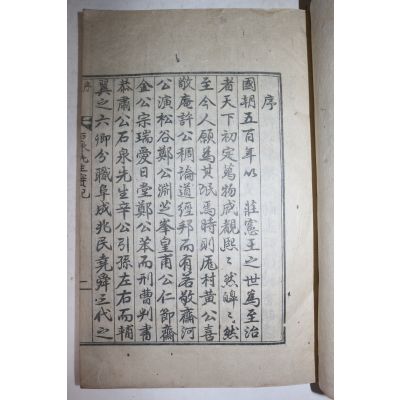 序
國朝五百年以 莊憲王之世爲至治
者天下初定萬物咸覩熙〻然皥〻然
至今人願爲其氓焉時則厖村黃公喜
敬庵許公稠論道經邦而有若敬齋河
公演松谷鄭公淵芝峯皇甫公仁節齋
金公宗瑞愛日堂鄭公苯而刑曹判書
恭肅公石泉先生辛公引孫左右而輔
翼之六卿分職阜成兆民堯舜三代之
序
石泉先生實記
一